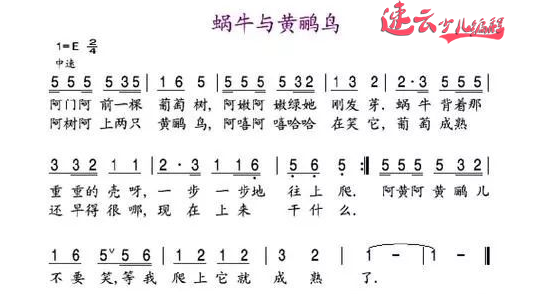 蜗牛与黄鹂鸟
速云少儿编程
1=E 2/4
中速
5 5 5 5 3 5 | 1 6 5 | 5 5 5 5 3 2 | 1 3 2 | 2·3 5 5 5 |
阿门阿 前一棵 葡萄树,阿嫩阿 嫩绿她 刚发芽.蜗牛背着那
阿树阿 上两只 黄鹂鸟,阿嘻阿 嘻哈哈 在笑它,葡萄成熟
3 3 2 1 1 | 2·3 1 1 6 | 5 6 5 :| 5 5 5 5 3 2 |
重重的壳呀,一步一步地 往上爬. 阿黄阿黄鹂儿
还早得很哪,现在上来 干什么.
1 6 5 ∨ 5 6 | 1 2 1 2 | 3 2 | 1 - | 1 0 ‖
不要笑,等我 爬上它就 成熟 了.